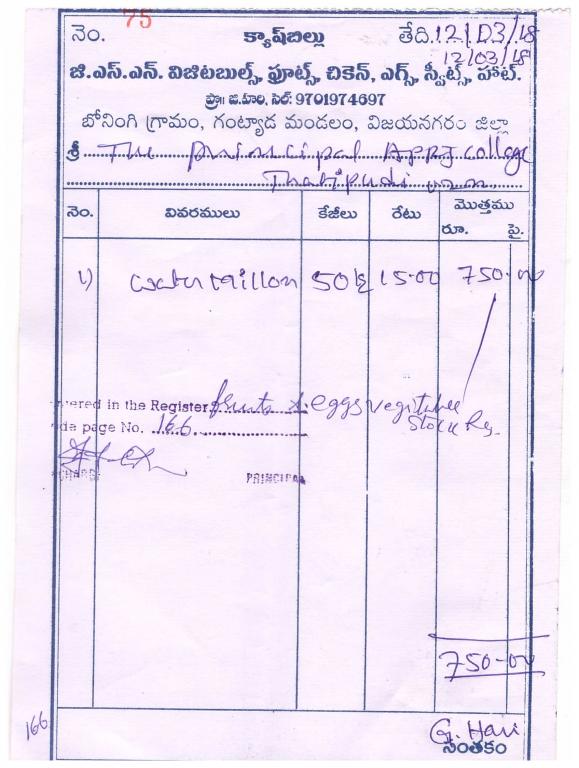 75
నెం. క్యాష్‌బిల్లు తేది. 12/03/18
12/03/18
జి.ఎస్.ఎన్. విజిటబుల్స్, ఫ్రూట్స్, చికెన్, ఎగ్స్, స్వీట్స్, హాట్.
ప్రొ॥ జి.హరి, సెల్: 9701974697
బోనింగి గ్రామం, గంట్యాడ మండలం, విజయనగరం జిల్లా
శ్రీ The principal APRJ college
Thatipudi
నెం. వివరములు కేజీలు రేటు మొత్తము
రూ. పై.
1) water millon 50 kg 15-00 750-00
ered in the Register fruits & eggs vegitable
Stock Reg.
de page No. 166
CHARGE PRINCIPAL
750-00
166
G. Hari
సంతకం